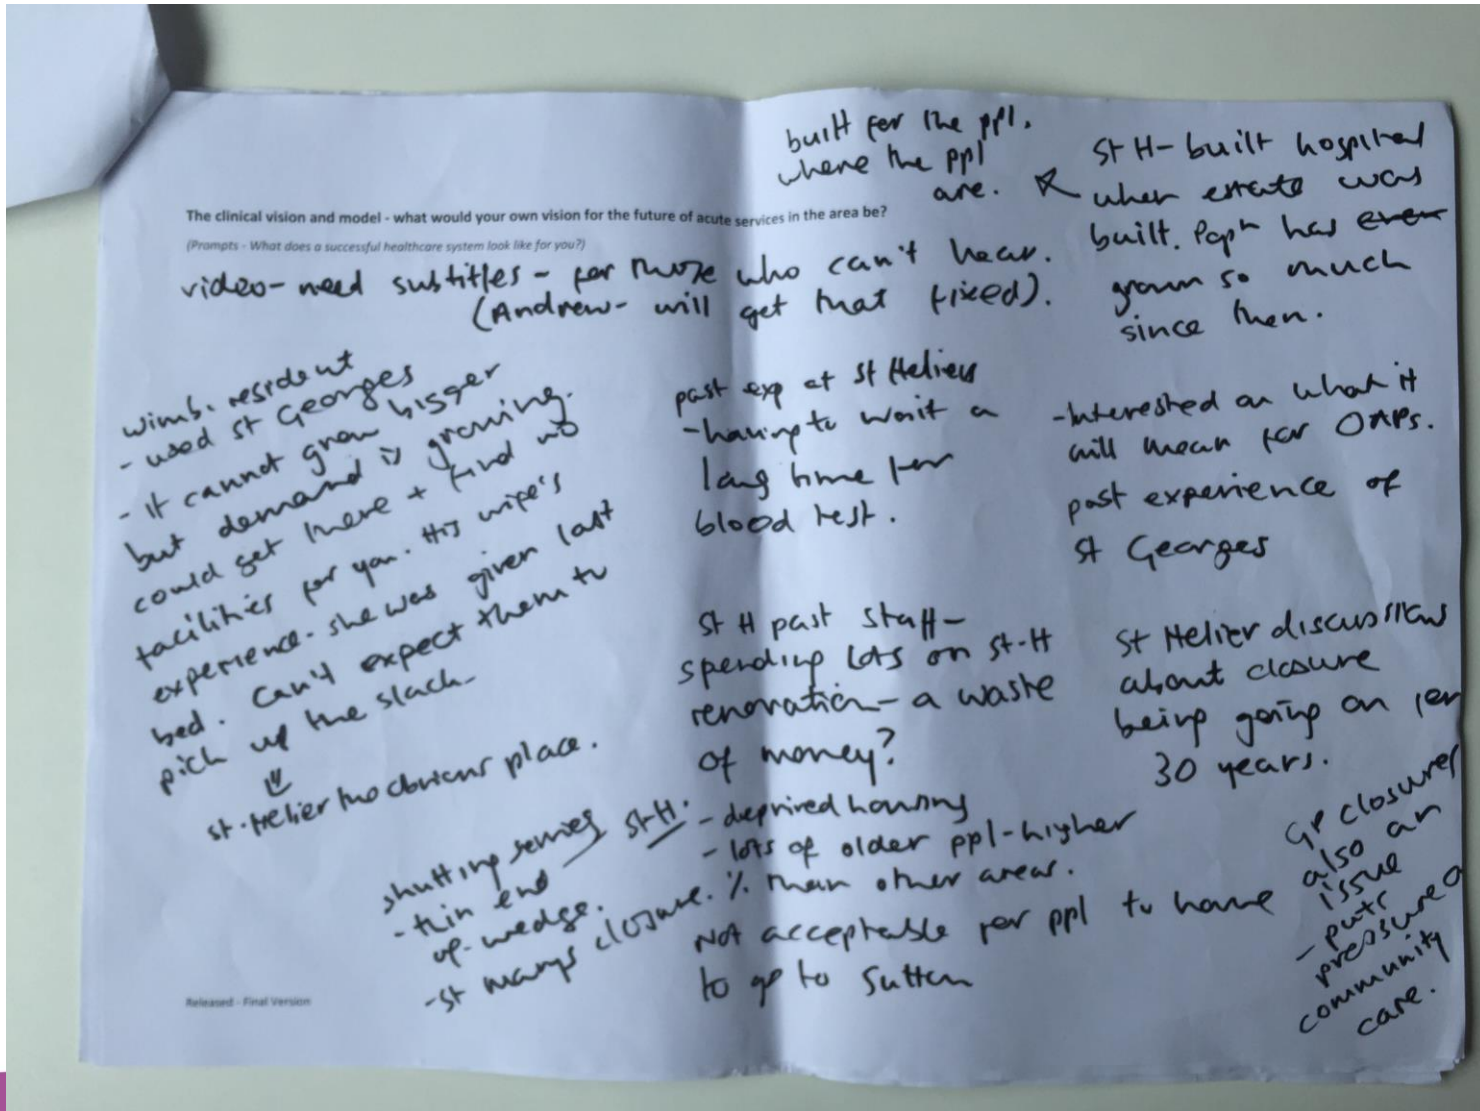 built for the ppl.
where the ppl
are.
St H - built hospital
when estate was
built. Popn has even
grown so much
since then.
The clinical vision and model - what would your own vision for the future of acute services in the area be?
(Prompts - What does a successful healthcare system look like for you?)
video - need subtitles - for those who can't hear.
(Andrew - will get that fixed).
wimb. resident
- used St Georges
- It cannot grow bigger
but demand is growing.
could get there + find no
facilities for you. His wife's
experience - she was given last
bed. Can't expect them to
pick up the slack -
St. Helier the obvious place.
past exp at St Heliers
- having to wait a
long time for
blood test.
- Interested on what it
will mean for OAPs.
past experience of
St Georges
St H past staff -
spending lots on St-H
renovation - a waste
of money?
St Helier discussions
about closure
being going on for
30 years.
shutting services St H.
- thin end
of - wedge.
- St Marys closure.
- deprived housing
- lots of older ppl - higher
% than other areas.
Not acceptable for ppl to have
to go to Sutton
GP closures
also an
issue
- puts
pressure o
community
care.
Released - Final Version